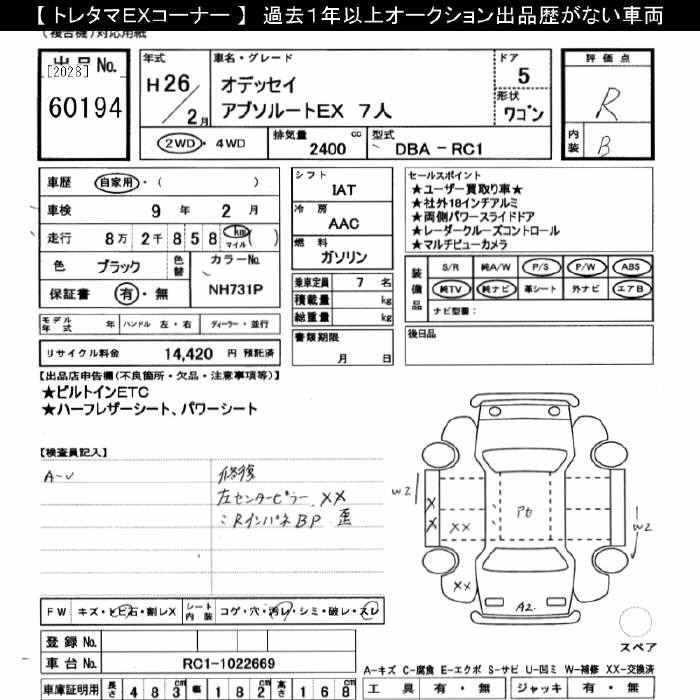 【 トレタマEXコーナー 】 過去１年以上オークション出品歴がない車両
(複合機)対応用紙
出品No.
[2028]
60194
年式
H26/2月
車名・グレード
オデッセイ
アブソルートEX 7人
ドア
5
形状
ワゴン
2WD・4WD
排気量 cc
2400
型式
DBA － RC1
評価点
R
内装
B
車歴 自家用・( )
車検 9 年 2 月
走行 8万 2千 8 5 8 km マイル ( )
色 ブラック 色替
カラーNo.
NH731P
保証書 有・無
モデル年式 年 ハンドル 左・右 ディーラー・並行
リサイクル料金 14,420 円 預託済
シフト
IAT
冷房
AAC
燃料
ガソリン
乗車定員 7 名
積載量 kg
総重量 kg
書類期限
月 日
セールスポイント
★ユーザー買取り車★
★社外18インチアルミ
★両側パワースライドドア
★レーダークルーズコントロール
★マルチビューカメラ
装備品
S/R 純A/W P/S P/W ABS
純TV 純ナビ 革シート 外ナビ エアB
ナビ型番：
後日品
【出品店申告欄(不良箇所・欠品・注意事項等)】
★ビルトインETC
★ハーフレザーシート、パワーシート
【検査員記入】
A-U
修復
左センターピラー XX
ミ RインパネBP 歪
W2
X
X
XX
XX
Pt
W2
A2.
FW キズ・トビ石・割レX シート内装 コゲ・穴・汚レ・シミ・破レ・スレ
登録 No.
車台 No. RC1-1022669
車庫証明用 長さ 4 8 3 cm 幅 1 8 2 cm 高さ 1 6 8 cm
スペア
A－キズ C－腐食 E－エクボ S－サビ U－凹ミ W－補修 XX－交換済
工具 有・無 ジャッキ 有・無